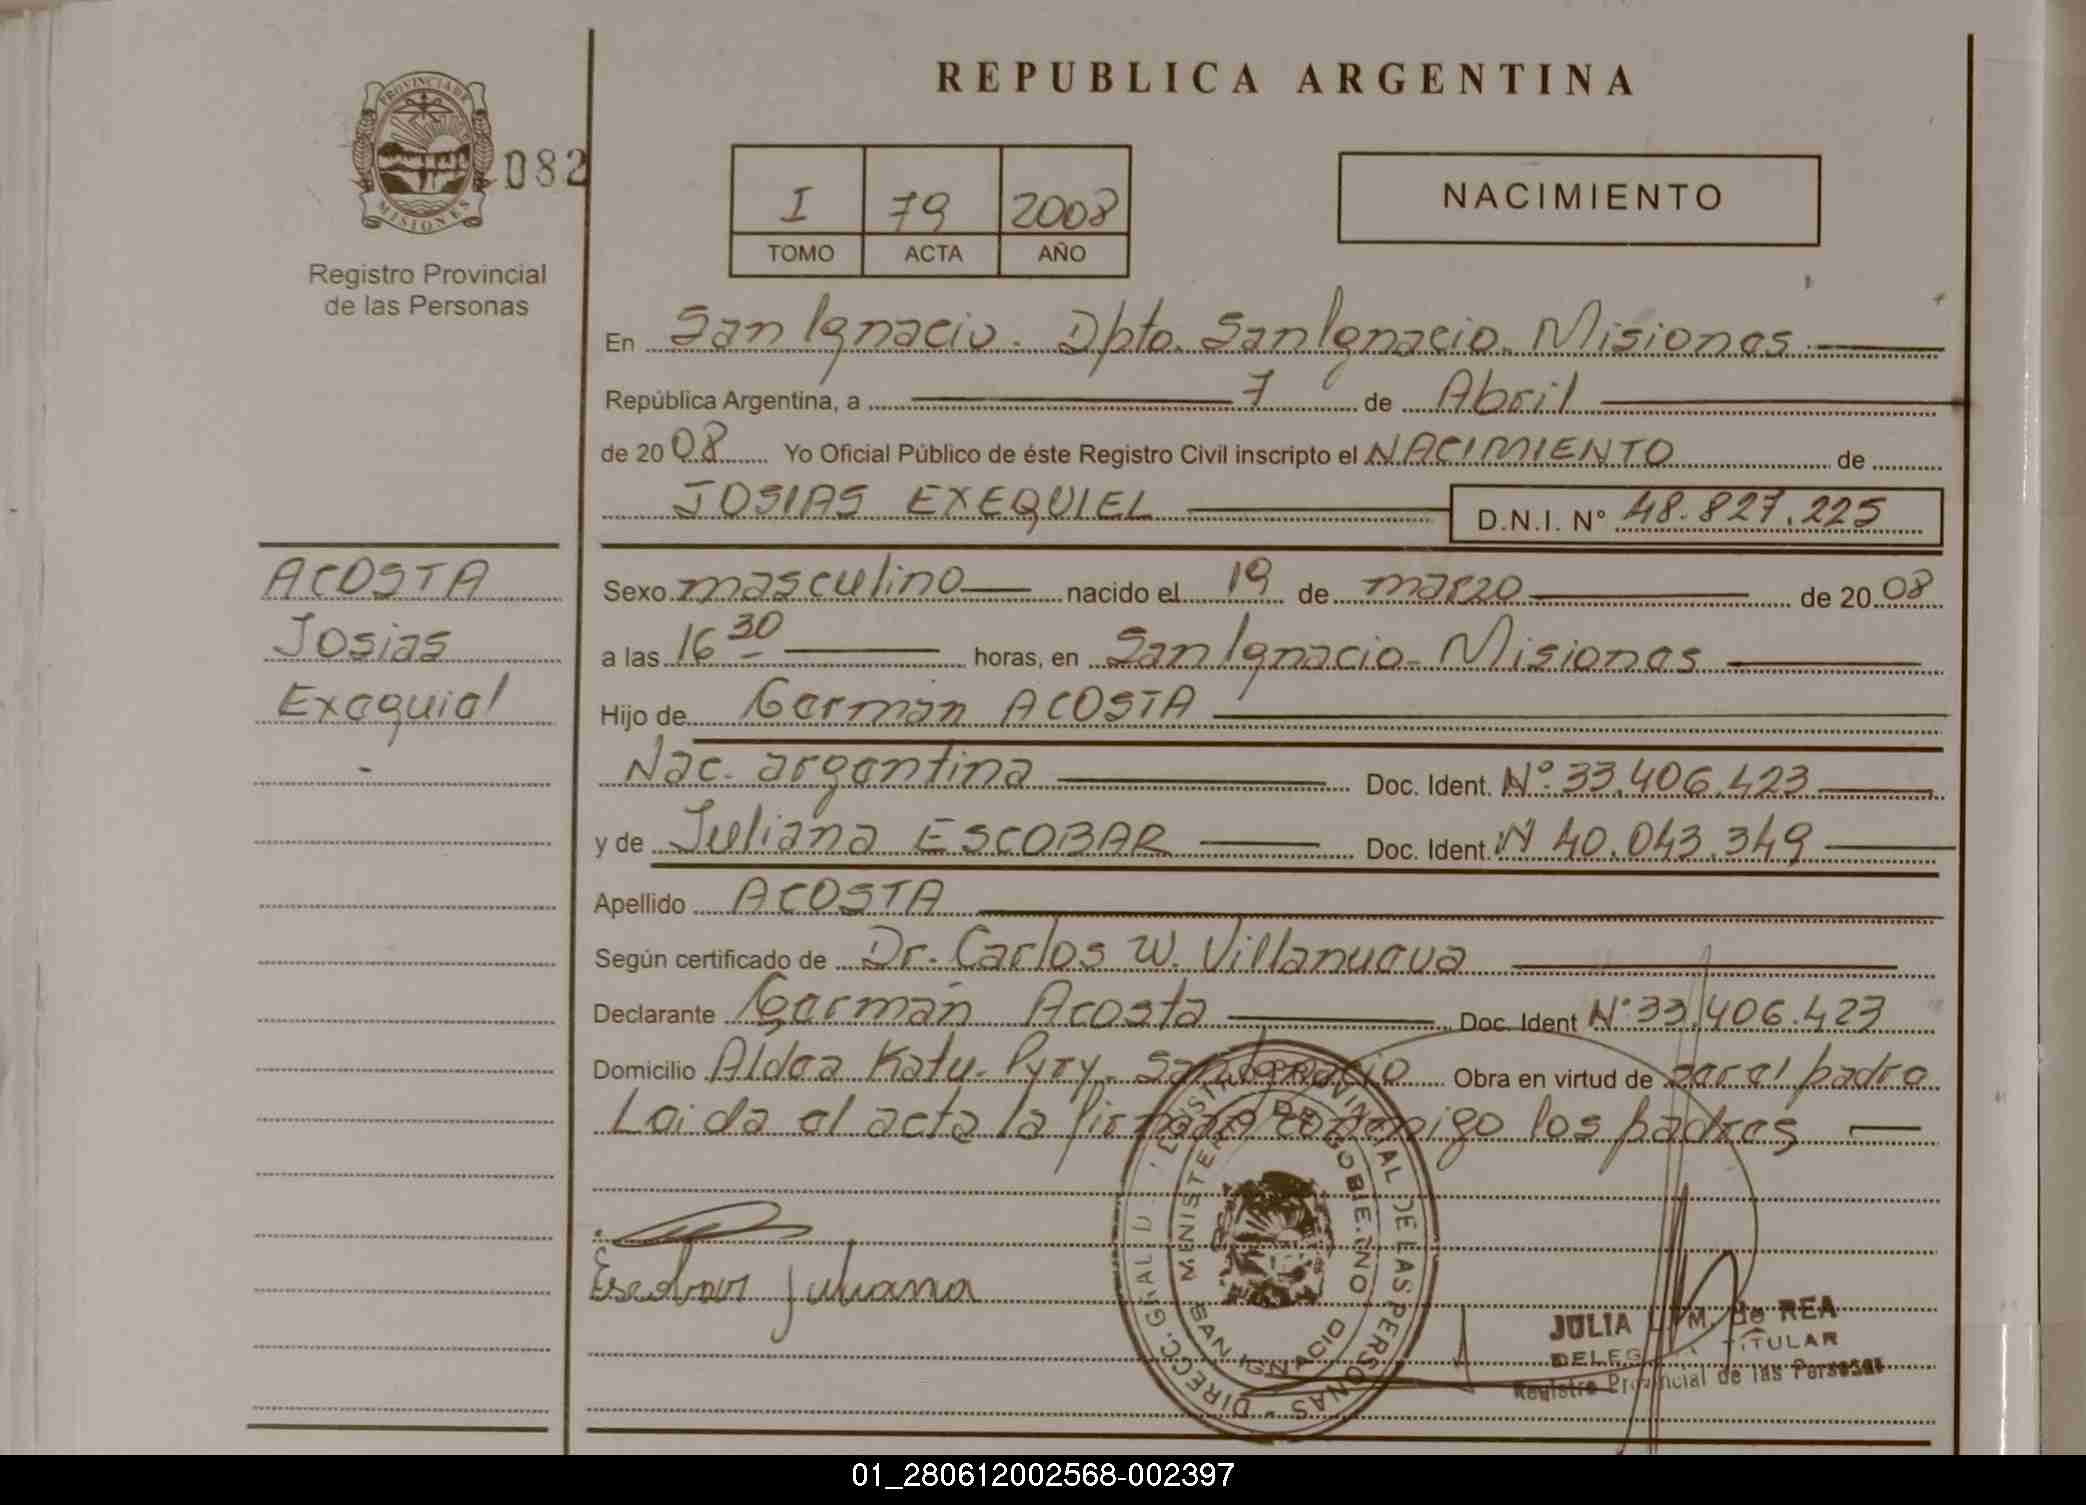 REPUBLICA ARGENTINA
PROVINCIA DE
MISIONES
082
Registro Provincial
de las Personas
I 79 2008
TOMO ACTA AÑO
NACIMIENTO
En San Ignacio. Dpto. San Ignacio. Misiones
República Argentina, a 7 de Abril
de 2008 Yo Oficial Público de éste Registro Civil inscripto el NACIMIENTO de
JOSIAS EXEQUIEL D.N.I. N° 48.827.225
ACOSTA
Josias
Exequiel
Sexo masculino nacido el 19 de marzo de 2008
a las 16 30 horas, en San Ignacio - Misiones
Hijo de Germán ACOSTA
Nac. argentina Doc. Ident. N° 33.406.423
y de Juliana ESCOBAR Doc. Ident. N 40.043.349
Apellido ACOSTA
Según certificado de Dr. Carlos W. Villanueva
Declarante Germán Acosta Doc. Ident N° 33.406.423
Domicilio Aldea Katu-Pyry. San Ignacio Obra en virtud de ser el padre
Leida el acta la firman conmigo los padres
Escobar Juliana
MINISTERIO DE GOBIERNO
SAN IGNACIO
PROVINCIAL DE LAS PERSONAS
JULIA M. de REA
TITULAR
Registro Provincial de las Personas
01_280612002568-002397